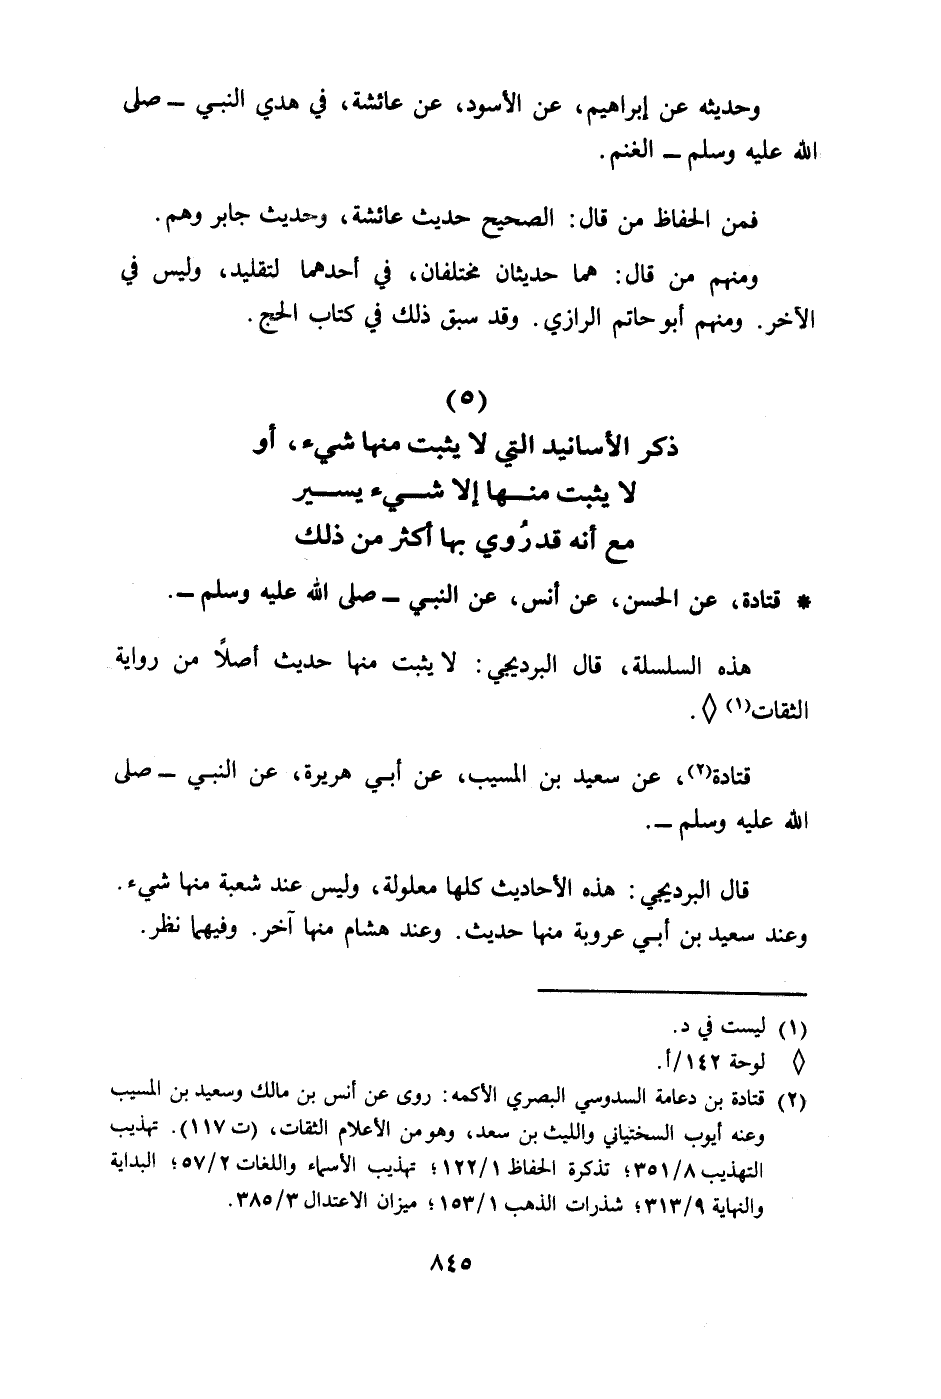 وحديثه عن إبراهيم، عن الأسود، عن عائشة، في هدي النبي ــ صلى
الله عليه وسلم ــ الغنم.
فمن الحفاظ من قال: الصحيح حديث عائشة، وحديث جابر وهم.
ومنهم من قال: هما حديثان مختلفان، في أحدهما لتقليد، وليس في
الآخر. ومنهم أبو حاتم الرازي. وقد سبق ذلك في كتاب الحج.
(٥)
ذكر الأسانيد التي لا يثبت منها شيء، أو
لا يثبت منـــها إلا شـــيء يســـير
مع أنه قد رُوي بها أكثر من ذلك
* قتادة، عن الحسن، عن أنس، عن النبي ــ صلى الله عليه وسلم ــ.
هذه السلسلة، قال البرديجي: لا يثبت منها حديث أصلًا من رواية
الثقات(١) ◊.
قتادة(٢)، عن سعيد بن المسيب، عن أبي هريرة، عن النبي ــ صلى
الله عليه وسلم ــ.
قال البرديجي: هذه الأحاديث كلها معلولة، وليس عند شعبة منها شيء.
وعند سعيد بن أبي عروبة منها حديث. وعند هشام منها آخر. وفيهما نظر.
(١) ليست في د.
◊ لوحة ١٤٢/أ.
(٢) قتادة بن دعامة السدوسي البصري الأكمه: روى عن أنس بن مالك وسعيد بن المسيب
وعنه أيوب السختياني والليث بن سعد، وهو من الأعلام الثقات، (ت ١١٧). تهذيب
التهذيب ٣٥١/٨؛ تذكرة الحفاظ ١٢٢/١؛ تهذيب الأسماء واللغات ٥٧/٢؛ البداية
والنهاية ٣١٣/٩؛ شذرات الذهب ١٥٣/١؛ ميزان الاعتدال ٣٨٥/٣.
٨٤٥